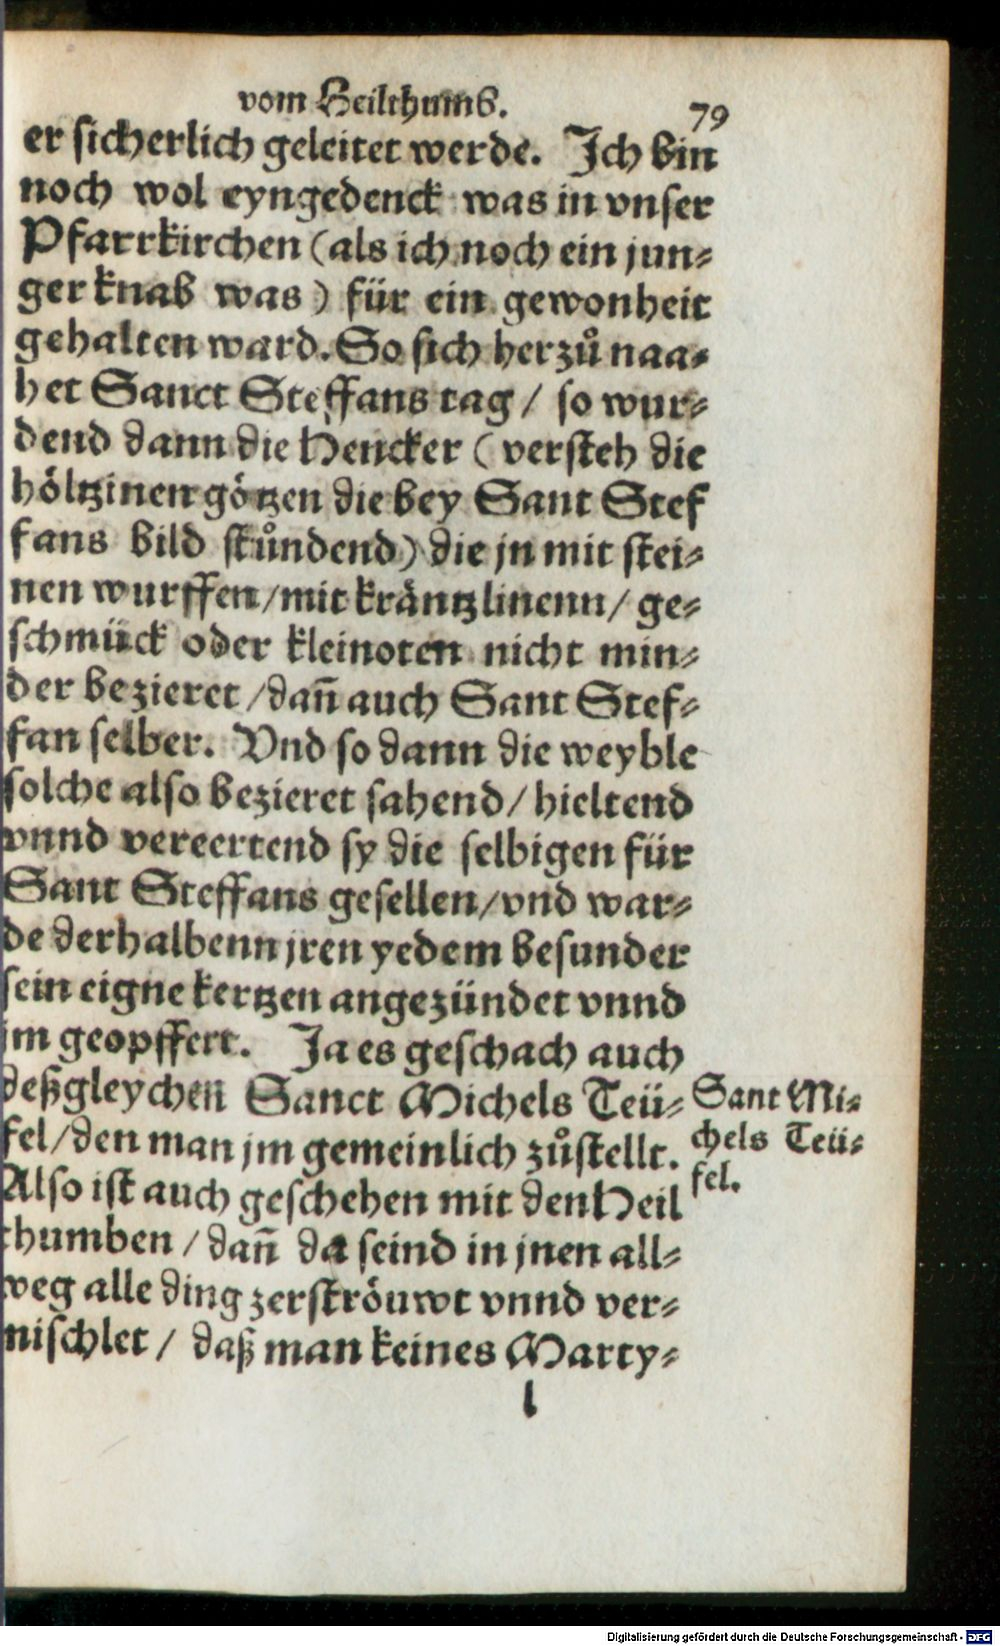 vom Heilthumb. 79
er sicherlich geleitet werde. Ich bin
noch wol eyngedenck was in vnser
Pfarrkirchen (als ich noch ein jun⸗
ger knab was) für ein gewonheit
gehalten ward. So sich herzů naa⸗
het Sanct Steffans tag / so wur⸗
dend dann die Hencker (versteh die
höltzinen götzen die bey Sant Stef
fans bild stůndend) die jn mit stei⸗
nen wurffen / mit kräntzlinenn / ge⸗
schmück oder kleinoten nicht min⸗
der bezieret / dañ auch Sant Stef⸗
fan selber. Vnd so dann die weyble
solche also bezieret sahend / hieltend
vnnd vereertend sy die selbigen für
Sant Steffans gesellen / vnd war⸗
de derhalbenn jren yedem besunder
sein eigne kertzen angezündet vnnd
jm geopffert. Ja es geschach auch
deßgleychen Sanct Michels Teü⸗
fel / den man jm gemeinlich zůstellt.
Also ist auch geschehen mit den Heil
thumben / dañ da seind in jnen all⸗
weg alle ding zerströuwt vnnd ver⸗
mischlet / daß man keines Marty⸗
l
Sant Mi⸗
chels Teü⸗
fel.
Digitalisierung gefördert durch die Deutsche Forschungsgemeinschaft - DFG